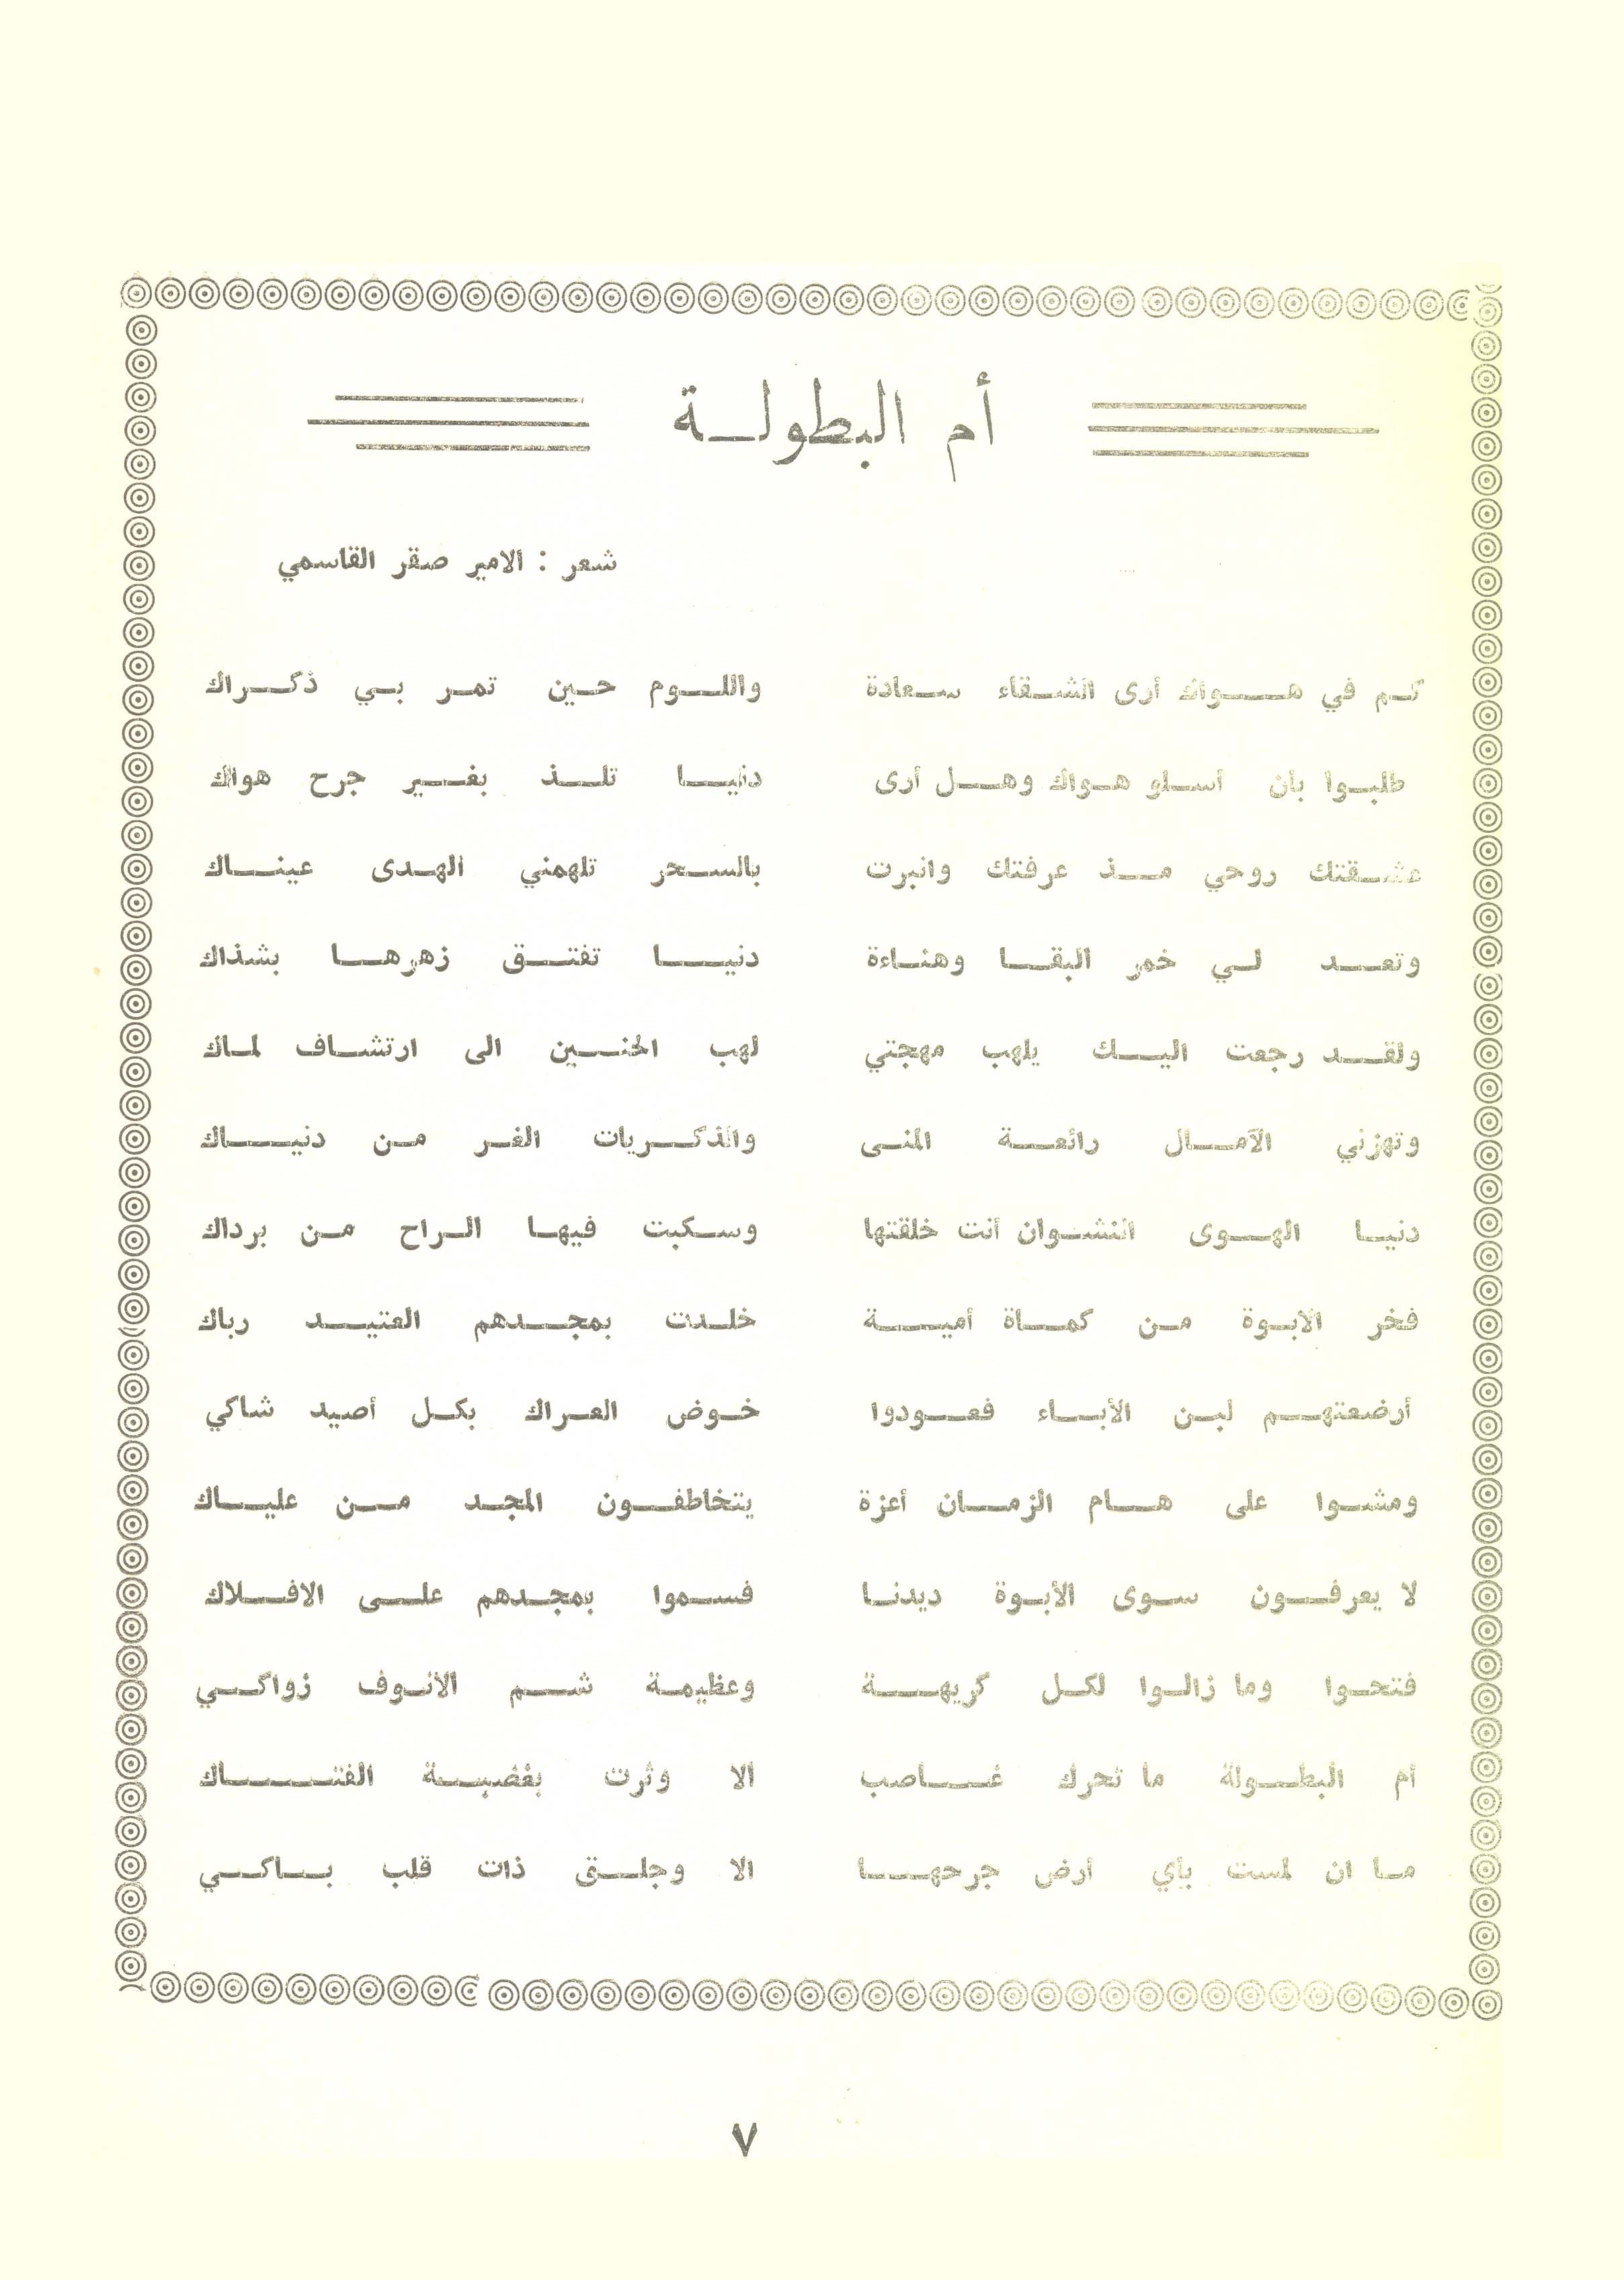 أم البطولة
شعر : الامير صقر القاسمي
كم في هواك أرى الشقاء سعادة واللوم حين تمر بي ذكراك
طلبوا بأن أسلو هواك وهل أرى دنيا تلذ بغير جرح هواك
عشقتك روحي مذ عرفتك وانبرت بالسحر تلهمني الهدى عيناك
وتعد لي خمر البقا وهناءة دنيا تفتق زهرها بشذاك
ولقد رجعت اليك يلهب مهجتي لهب الحنين الى ارتشاف لماك
وتهزني الآمال رائعة المنى والذكريات الغر من دنياك
دنيا الهوى النشوان أنت خلقتها وسكبت فيها الراح من برداك
فخر الابوة من كماة أمية خلدت بمجدهم العتيد رباك
أرضعتهم لبن الأباء فعودوا خوض العراك بكل أصيد شاكي
ومشوا على هام الزمان أعزة يتخاطفون المجد من علياك
لا يعرفون سوى الأبوة ديدنا فسموا بمجدهم على الافلاك
فتحوا وما زالوا لكل كريهة وعظيمة شم الانوف زواكي
أم البطولة ما تحرك غاصب الا وثرت بغضبة الفتاك
ما ان لمست بأي أرض جرحها الا وجلتق ذات قلب باكي
٧